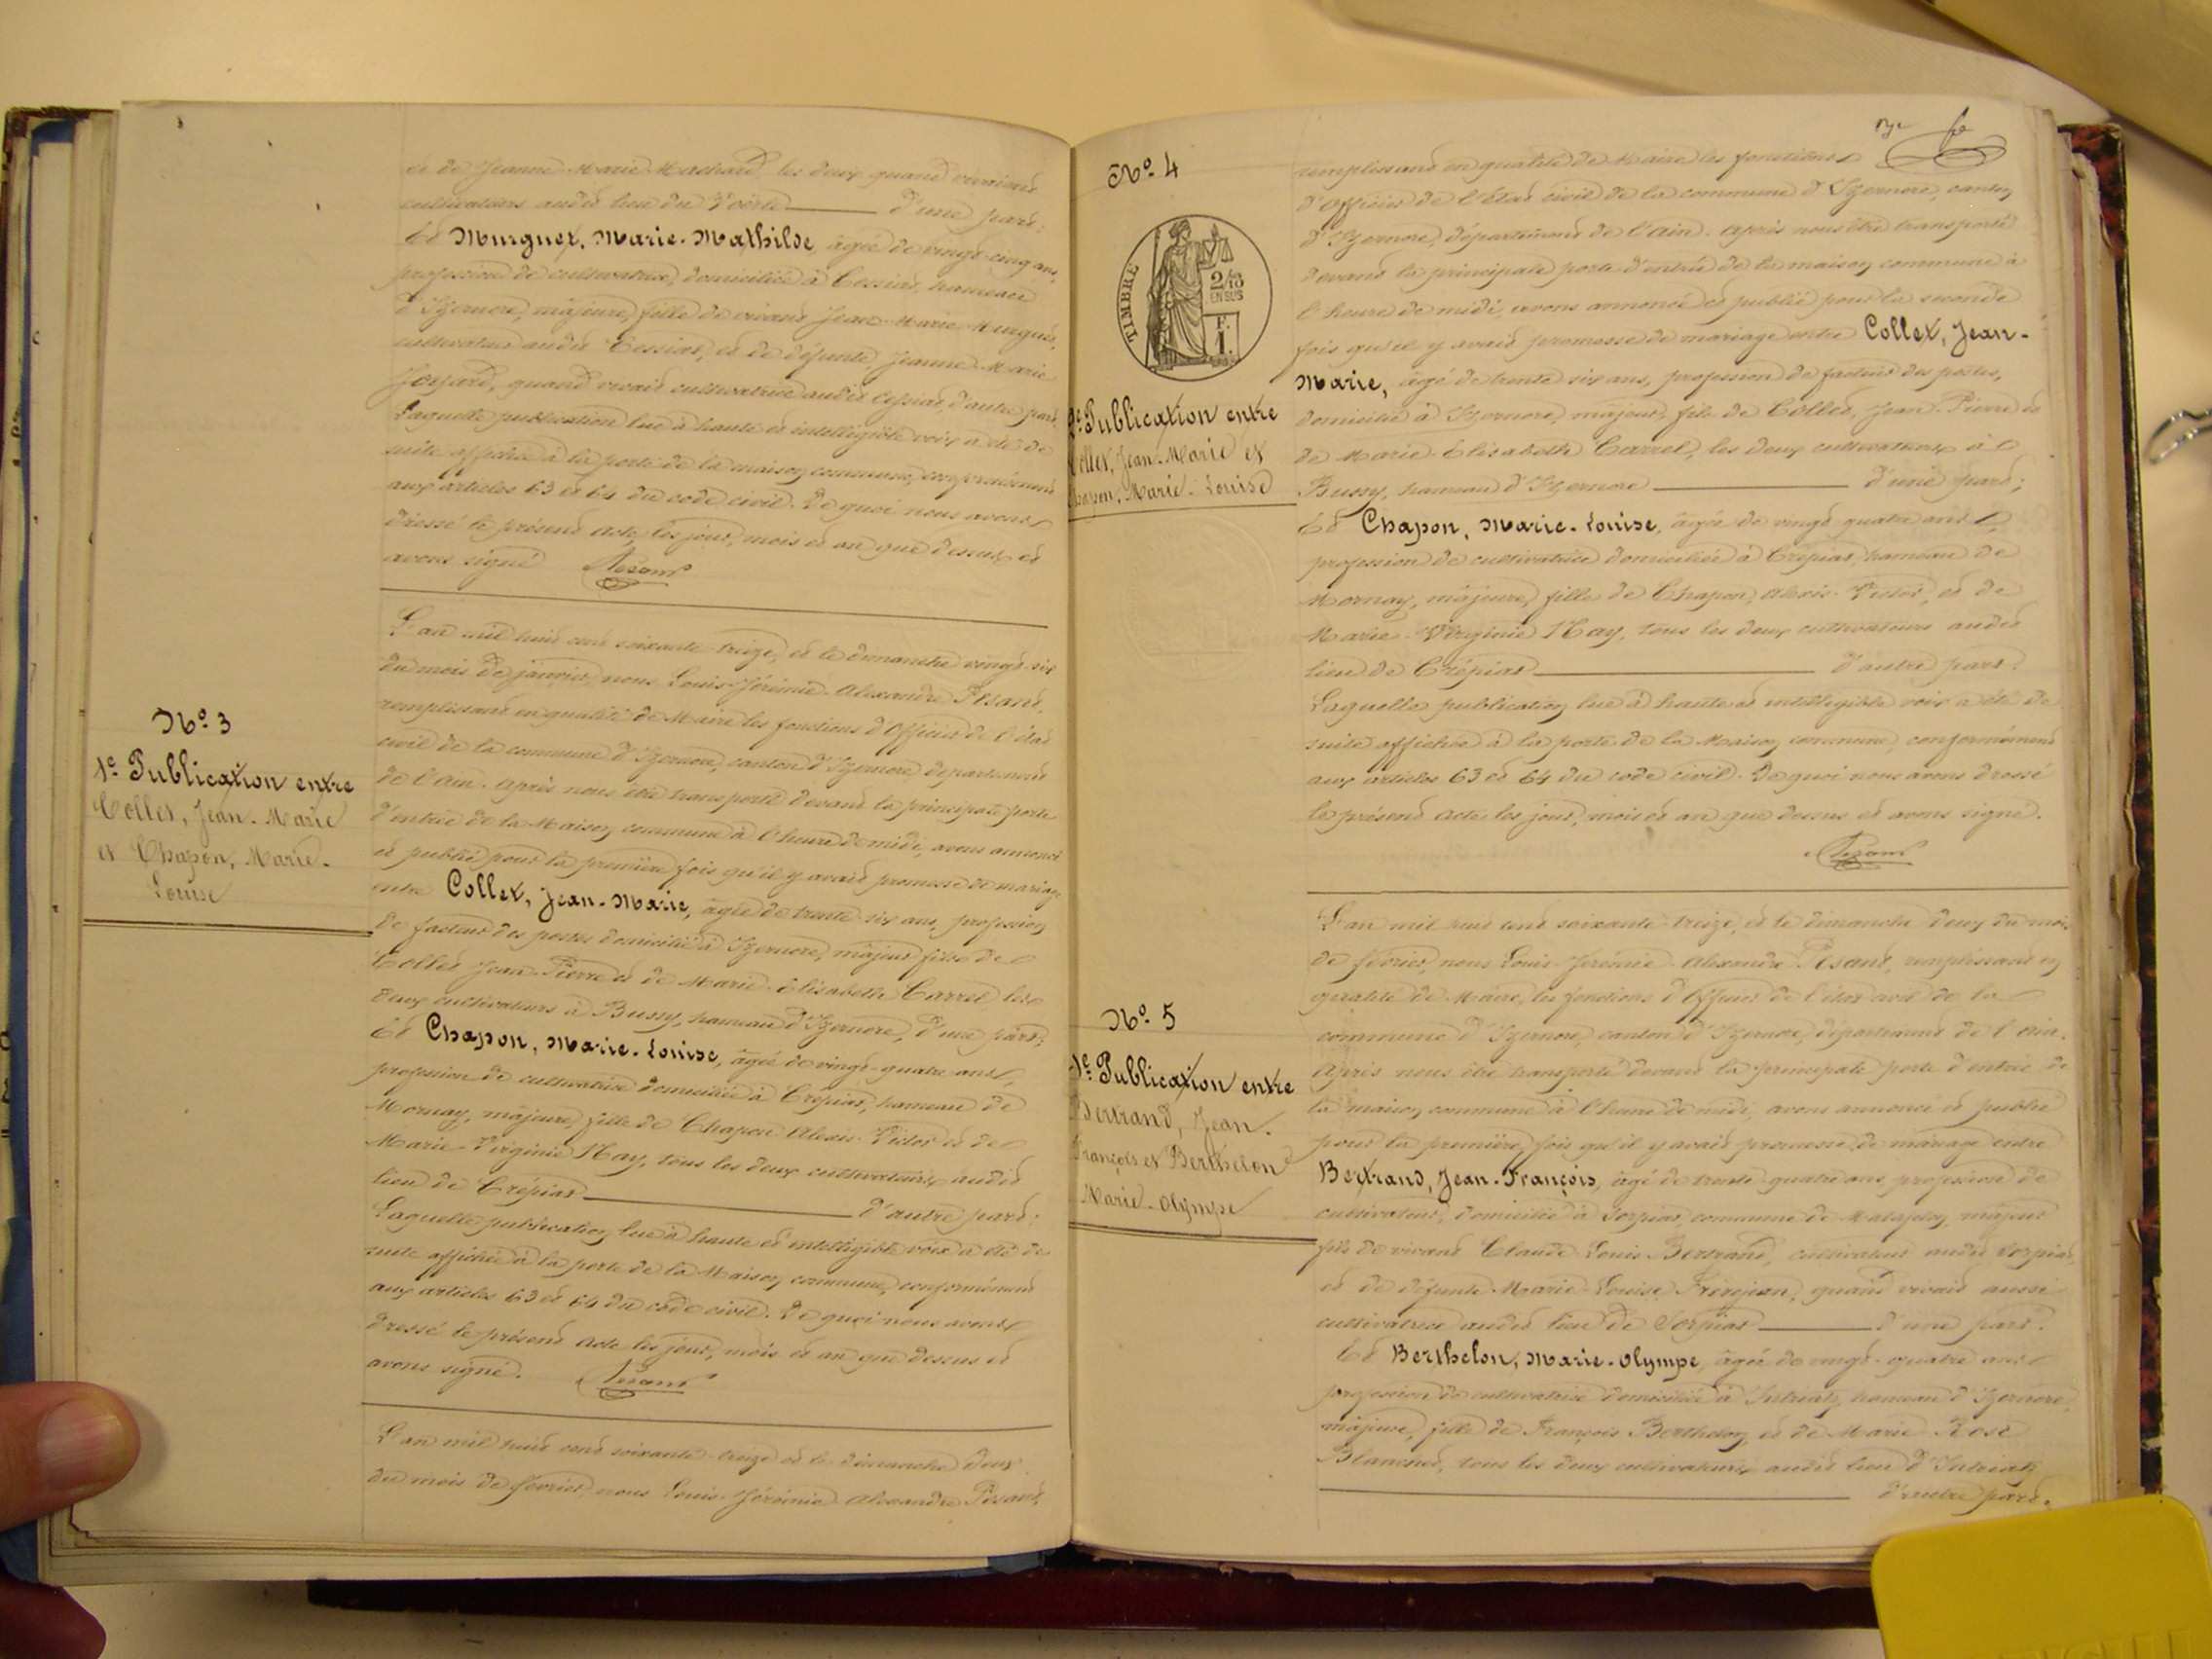 et de Jeanne Marie Machard, les deux quand vivaient
cultivateurs audit lieu du Voërle d'une part;
Et Murguet, Marie-Mathilde, âgée de vingt-cinq ans,
profession de cultivatrice, domiciliée à Cessiat, hameau
d'Izernore, majeure, fille de vivant Jean-Marie Murguet,
cultivateur audit Cessiat, et de défunte Jeanne-Marie
quand vivait cultivatrice audit Cessiat, d'autre part.
Laquelle publication lue à haute et intelligible voix a été de
suite affichée à la porte de la maison commune, conformément
aux articles 63 et 64 du code civil. De quoi nous avons
dressé le présent acte, les jour, mois et an que dessus et
avons signé
Pesant
No. 3
1e Publication entre
Collet, Jean-Marie
et Chapon, Marie-
Louise
L'an mil huit cent soixante-treize, et le dimanche vingt-six
du mois de janvier, nous Louis-Jérémie-Alexandre Pesant,
remplissant en qualité de Maire les fonctions d'Officier de l'état
civil de la commune d'Izernore, canton d'Izernore département
de l'Ain. Après nous être transporté devant la principale porte
d'entrée de la Maison commune à l'heure de midi, avons annoncé
et publié pour la première fois qu'il y avait promesse de mariage
entre Collet, Jean-Marie, âgé de trente-six ans, profession
de facteur des postes domicilié à Izernore, majeur fils de
Collet Jean-Pierre et de Marie-Elisabeth Carrel, les
deux cultivateurs à Bussy, hameau d'Izernore, d'une part;
Et Chapon, Marie-Louise, âgée de vingt-quatre ans,
profession de cultivatrice domiciliée à Crépiat, hameau de
Mornay, majeure, fille de Chapon Alexis-Victor et de
Marie-Virginie Nay, tous les deux cultivateurs audit
lieu de Crépiat d'autre part;
Laquelle publication lue à haute et intelligible voix a été de
suite affichée à la porte de la Maison commune, conformément
aux articles 63 et 64 du code civil. De quoi nous avons
dressé le présent acte les jour, mois et an que dessus et
avons signé.
Pesant
L'an mil huit cent soixante-treize et le dimanche deux
du mois de février, nous Louis-Jérémie-Alexandre Pesant,
No. 4
TIMBRE
2/10
EN SUS
F.
1.
2e Publication entre
Collet, Jean-Marie et
Chapon, Marie-Louise
remplissant en qualité de Maire les fonctions
d'Officier de l'état civil de la commune d'Izernore, canton
d'Izernore, département de l'Ain. Après nous être transporté
devant la principale porte d'entrée de la maison commune à
l'heure de midi, avons annoncé et publié pour la seconde
fois qu'il y avait promesse de mariage entre Collet, Jean-
Marie, âgé de trente-six ans, profession de facteur des postes,
domicilié à Izernore, majeur, fils de Collet, Jean-Pierre et
de Marie-Elisabeth Carrel, les deux cultivateurs à
Bussy, hameau d'Izernore d'une part;
Et Chapon, Marie-Louise, âgée de vingt-quatre ans,
profession de cultivatrice domiciliée à Crépiat, hameau de
Mornay, majeure, fille de Chapon, Alexis-Victor, et de
Marie-Virginie Nay, tous les deux cultivateurs audit
lieu de Crépiat d'autre part.
Laquelle publication lue à haute et intelligible voix a été de
suite affichée à la porte de la Maison commune, conformément
aux articles 63 et 64 du code civil. De quoi nous avons dressé
le présent acte les jour, mois et an que dessus et avons signé.
Pesant
No. 5
1e Publication entre
Bertrand, Jean-
François et Berthelon
Marie-Olympe
L'an mil huit cent soixante-treize, et le dimanche deux du mois
de février, nous Louis-Jérémie-Alexandre Pesant, remplissant en
qualité de Maire, les fonctions d'Officier de l'état civil de la
commune d'Izernore, canton d'Izernore, département de l'Ain.
Après nous être transporté devant la principale porte d'entrée de
la maison commune à l'heure de midi, avons annoncé et publié
pour la première fois qu'il y avait promesse de mariage entre
Bertrand, Jean-François, âgé de trente-quatre ans, profession de
cultivateur, domicilié à Sorpiat, commune de Matafelon, majeur
fils de vivant Claude-Louis Bertrand, cultivateur audit Sorpiat,
et de défunte Marie-Louise Frérejean, quand vivait aussi
cultivatrice audit lieu de Sorpiat d'une part.
Et Berthelon, Marie-Olympe, âgée de vingt-quatre ans
profession de cultivatrice domiciliée à Intriat, hameau d'Izernore,
majeure, fille de François Berthelon, et de Marie Rose
Blanchet, tous les deux cultivateurs audit lieu d'Intriat
d'autre part.